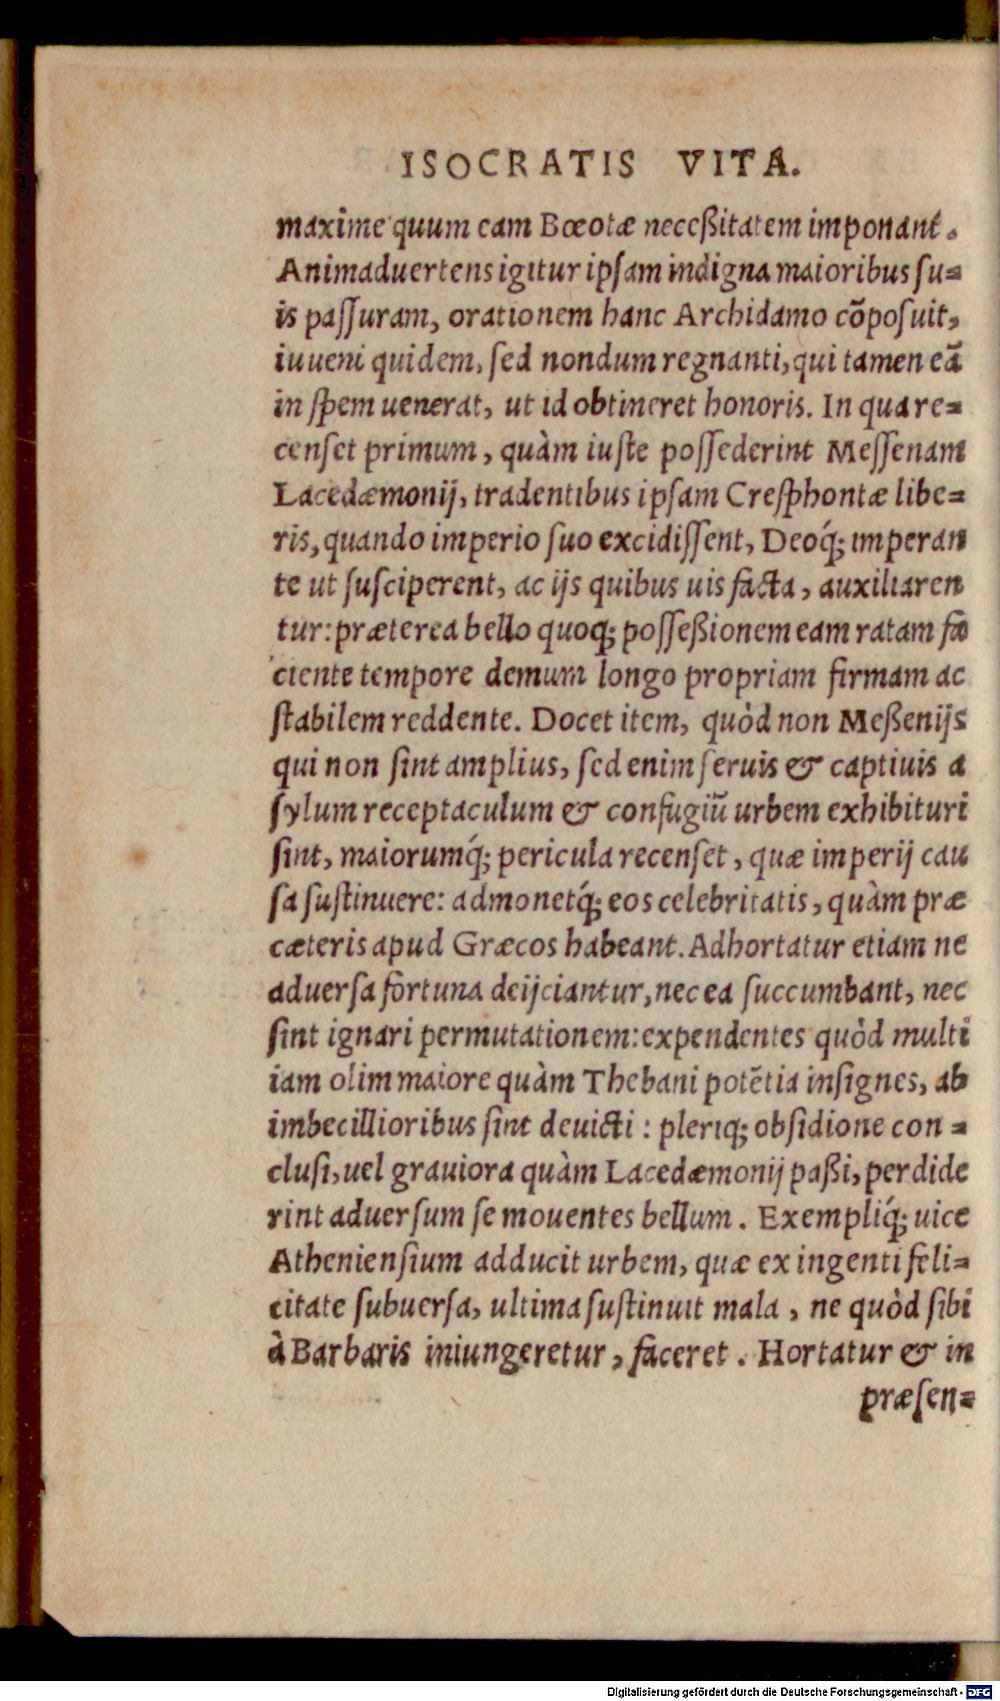 ISOCRATIS VITA.
maxime quum eam Bœotæ neceßitatem imponant.
Animaduertens igitur ipſam indigna maioribus ſu=
is paſſuram, orationem hanc Archidamo cõpoſuit,
iuueni quidem, ſed nondum regnanti, qui tamen eã
in ſpem uenerat, ut id obtineret honoris. In qua re=
cenſet primum, quàm iuſte poſſederint Meſſenam
Lacedæmonij, tradentibus ipſam Creſphontæ libe=
ris, quando imperio ſuo excidiſſent, Deoq́; imperan
te ut ſuſciperent, ac ijs quibus uis facta, auxiliaren
tur: præterea bello quoq; poſſeßionem eam ratam fa
ciente tempore demum longo propriam firmam ac
ſtabilem reddente. Docet item, quòd non Meßenijs
qui non ſint amplius, ſed enim ſeruis & captiuis a
ſylum receptaculum & confugiũ urbem exhibituri
ſint, maiorumq́; pericula recenſet, quæ imperij cau
ſa ſuſtinuere: admonetq́; eos celebritatis, quàm præ
cæteris apud Græcos habeant. Adhortatur etiam ne
aduerſa fortuna deijciantur, nec ea ſuccumbant, nec
ſint ignari permutationem: expendentes quòd multi
iam olim maiore quàm Thebani potẽtia inſignes, ab
imbecillioribus ſint deuicti: pleriq; obſidione con=
cluſi, uel grauiora quàm Lacedæmonij paßi, perdide
rint aduerſum ſe mouentes bellum. Exempliq́; uice
Athenienſium adducit urbem, quæ ex ingenti feli=
citate ſubuerſa, ultima ſuſtinuit mala, ne quòd ſibi
à Barbaris iniungeretur, faceret. Hortatur & in
præſen=
Digitalisierung gefördert durch die Deutsche Forschungsgemeinschaft - DFG